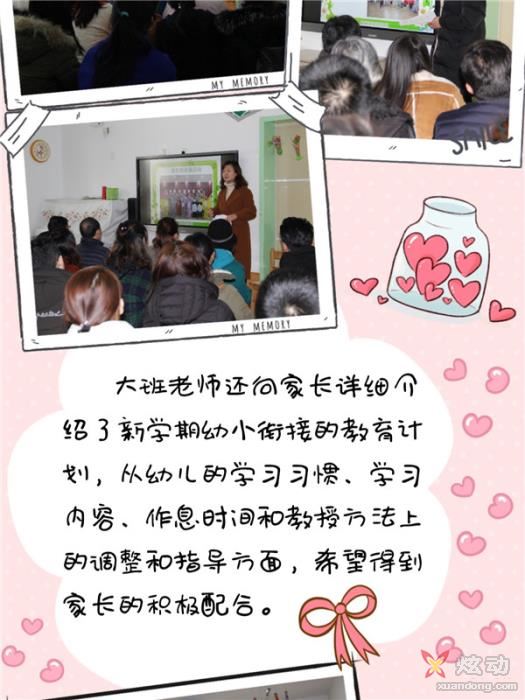 MY MEMORY
SMILE
MY MEMORY
大班老师还向家长详细介
绍了新学期幼小衔接的教育计
划，从幼儿的学习习惯、学习
内容、作息时间和教授方法上
的调整和指导方面，希望得到
家长的积极配合。
炫动
xuandong.com